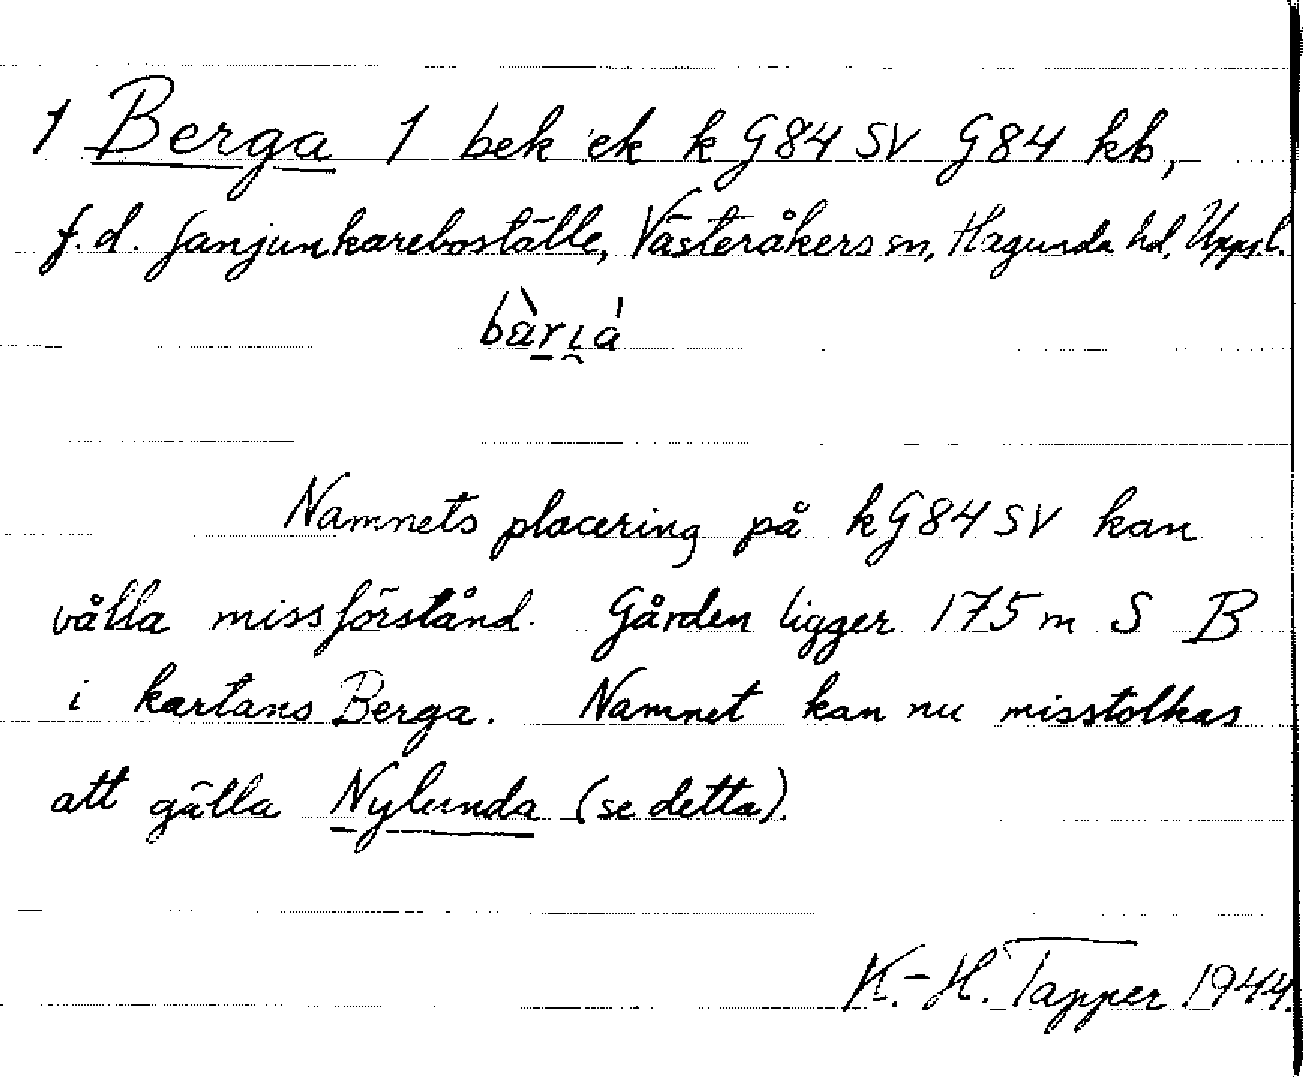 1 Berga 1 bek ek k G84 SV G84 kb,
f.d. fanjunkareboställe, Västeråkers sn, Hagunda hd, Uppl.
bàri̯á
Namnets placering på kG84 SV kan
vålla missförstånd. Gården ligger 175 m S B
i kartans Berga. Namnet kan nu misstolkas
att gälla Nylunda (se detta).
K.-H. Tapper 1944.